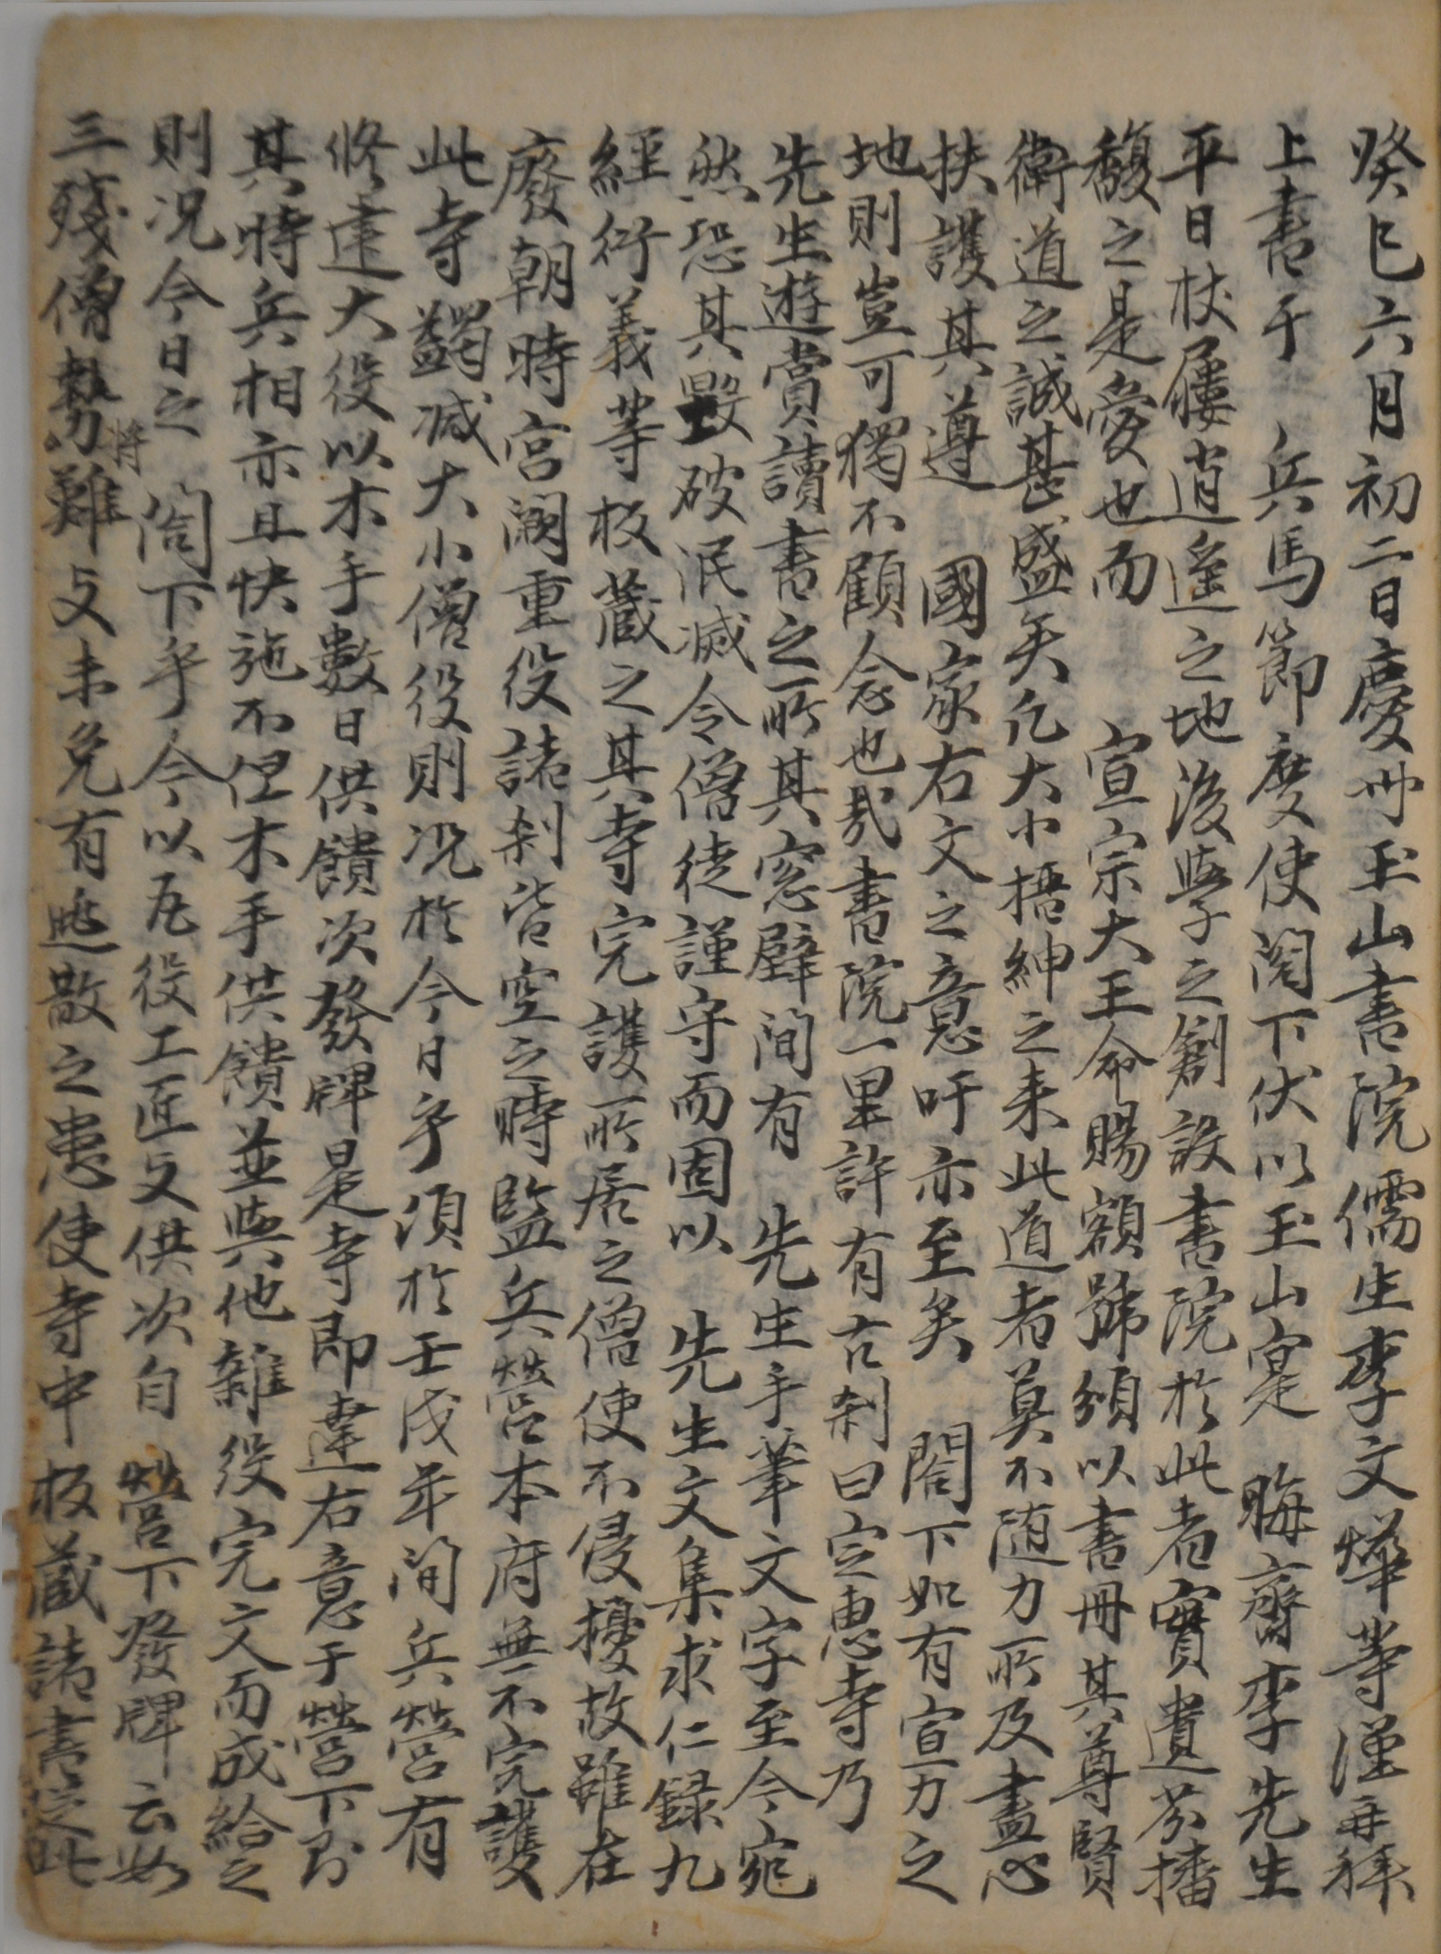 癸巳六月初二日慶州玉山書院儒生李文燁等謹再拜
上書于 兵馬節度使閤下伏以玉山寔 晦齋李先生
平日杖屨逍遙之地後學之創設書院於此者實遺芬播
馥之是愛也而 宣宗大王命賜額號頒以書冊其尊賢
衛道之誠甚盛矣凡大小搢紳之来此道者莫不随力所及盡心
扶護其遵 國家右文之意吁亦至矣 閤下如有宣力之
地則豈可獨不顧念也哉書院一里許有古刹曰定惠寺乃
先生遊賞讀書之所其窓壁间有 先生手筆文字至今宛
然恐其毀破泯滅令僧徒謹守而固以 先生文集求仁録九
經衍義等板藏之其寺完護所居之僧使不侵擾故雖在
廢朝時宮闕重役諸刹皆空之時監兵營本府無不完護
此寺蠲减大小僧役則况於今日乎須於壬戌年间兵營有
修建大役以木手數日供饋次發牌是寺即達右意于營下則
其時兵相亦且快施不但木手供饋並與他雜役完文而成給之
則况今日之 閤下乎今以瓦役工匠又供次自 營下發牌云如
三殘僧勢難支未免有將逃散之患使寺中板藏諸書從此